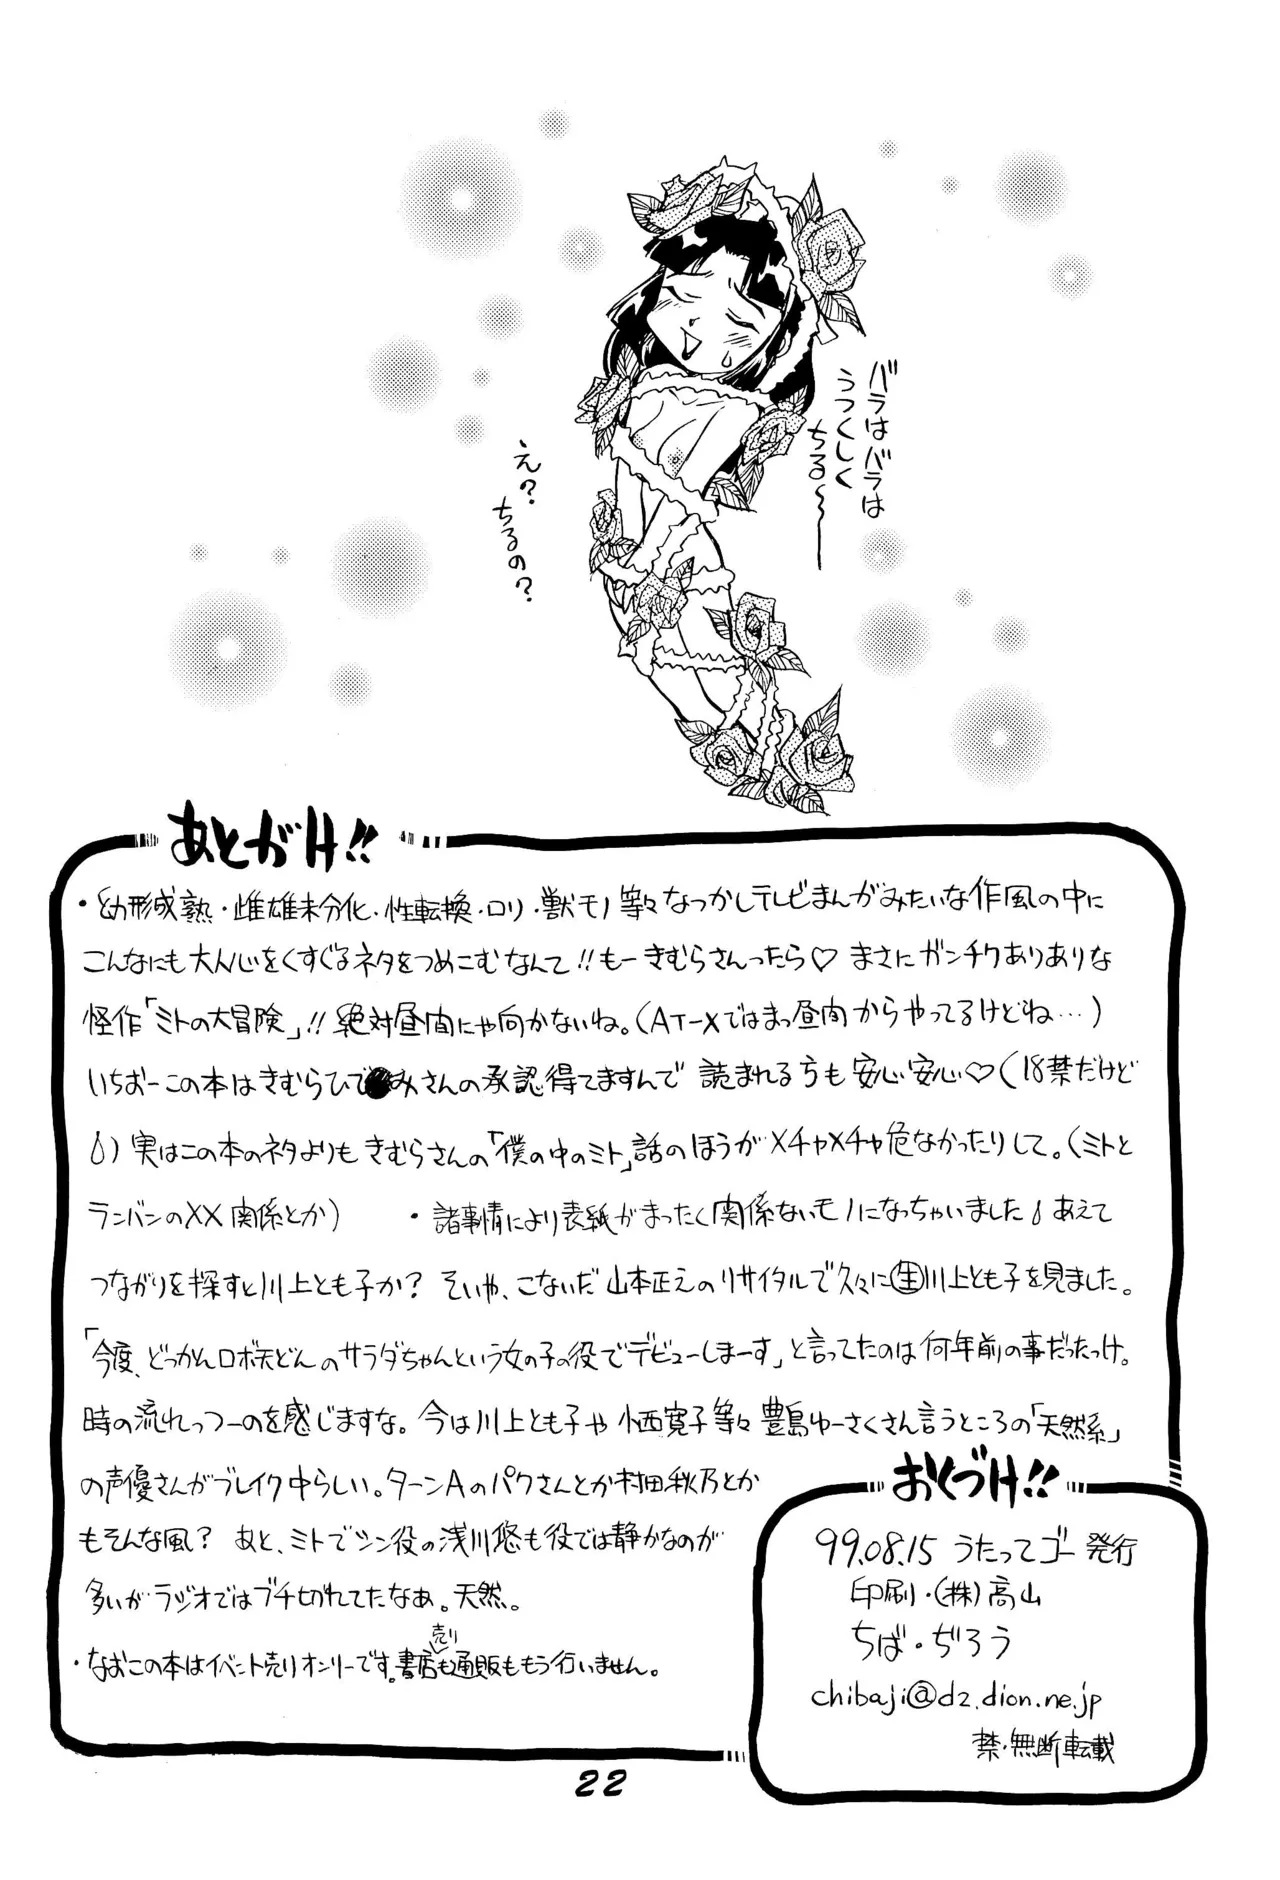 バラはバラは
うつくしく
ちる〜
え?
ちるの?
あとがけ!!
・幼形成熟・雌雄未分化・性転換・ロリ・獣モノ等々なつかしテレビまんがみたいな作風の中に
こんなにも大人心をくすぐるネタをつめこむなんて!!もーきむらさんったら♡まさにガンチクありありな
怪作「ミトの大冒険」!!絶対昼間にゃ向かないね。(AT-Xではまっ昼間からやってるけどね…)
いちおーこの本はきむらひでふみさんの承認得てますんで読まれる方も安心安心♡(18禁だけど
)実はこの本のネタよりもきむらさんの「僕の中のミト」話のほうがメチャメチャ危なかったりして。(ミトと
ランバンのXX関係とか)　・諸事情により表紙がまったく関係ないモノになっちゃいました あえて
つながりを探すと川上とも子か?そいや、こないだ山本正之のリサイタルで久々に生川上とも子を見ました。
「今度、どっかんロボ天どんのサラダちゃんという女の子の役でデビューしまーす」と言ってたのは何年前の事だったっけ。
時の流れっつーのを感じますな。今は川上とも子や小西寛子等々豊島ゆーさくさん言うところの「天然系」
の声優さんがブレイク中らしい。ターンAのパクさんとか村田秋乃とか
もそんな風?あと、ミトでシン役の浅川悠も役では静かなのが
多いがラジオではブチ切れてたなあ。天然。
・なおこの本はイベント売りオンリーです。書店売りも通販ももう行いません。
おくづけ!!
99.08.15 うたってゴー発行
印刷・(株)高山
ちば・ぢろう
chibaji@d2.dion.ne.jp
禁・無断転載
22